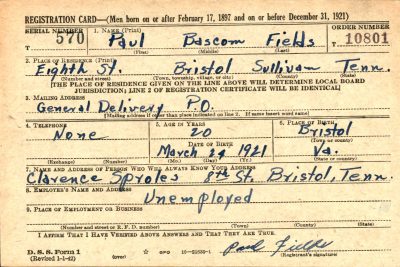 REGISTRATION CARD—(Men born on or after February 17, 1897 and on or before December 31, 1921)
SERIAL NUMBER 1. NAME (Print) ORDER NUMBER
570 Paul Bascom Fields 10801
(First) (Middle) (Last)
2. PLACE OF RESIDENCE (Print)
Eighth St. Bristol Sullivan Tenn.
(Number and street) (Town, township, village, or city) (County) (State)
[THE PLACE OF RESIDENCE GIVEN ON THE LINE ABOVE WILL DETERMINE LOCAL BOARD
JURISDICTION; LINE 2 OF REGISTRATION CERTIFICATE WILL BE IDENTICAL]
3. MAILING ADDRESS
General Delivery P.O.
[Mailing address if other than place indicated on line 2. If same insert word same]
4. TELEPHONE 5. AGE IN YEARS 6. PLACE OF BIRTH
None 20 Bristol
DATE OF BIRTH (Town or county)
March 29 1921 Va.
(Exchange) (Number) (Mo.) (Day) (Yr.) (State or country)
7. NAME AND ADDRESS OF PERSON WHO WILL ALWAYS KNOW YOUR ADDRESS
Clarence Sproles 8th St. Bristol, Tenn.
8. EMPLOYER'S NAME AND ADDRESS
Unemployed
9. PLACE OF EMPLOYMENT OR BUSINESS
(Number and street or R. F. D. number) (Town) (County) (State)
I AFFIRM THAT I HAVE VERIFIED ABOVE ANSWERS AND THAT THEY ARE TRUE.
D. S. S. Form 1 Paul Fields
(Revised 1-1-42) (over) GPO (Registrant's signature)